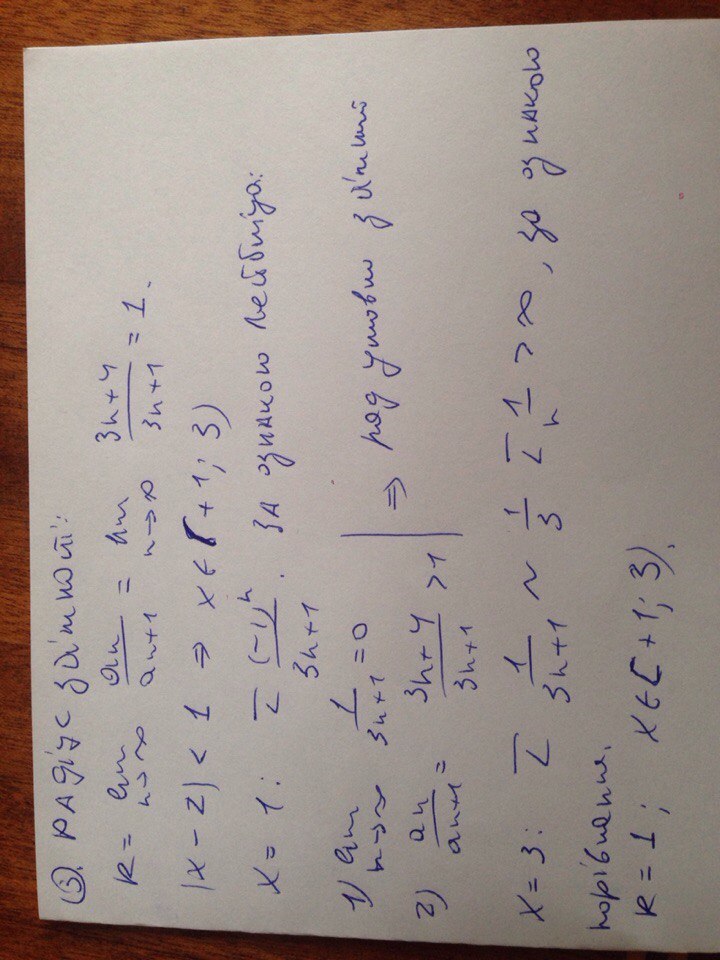 ③ РАДІУС ЗБІЖНОСТІ:
R = lim n→∞ an/an+1 = lim n→∞ 3n+4/3n+1 = 1.
|x-2| < 1 ⇒ x∈[+1; 3)
x = 1: Σ (-1)^n/3n+1. ЗА ОЗНАКОЮ Лейбніца:
1) lim n→∞ 1/3n+1 = 0
2) an/an+1 = 3n+4/3n+1 > 1 | ⇒ ряд умовно збіжний
x = 3: Σ 1/3n+1 ~ 1/3 Σ 1/n > ∞, за ознакою
порівняння.
R = 1; x∈[+1; 3).